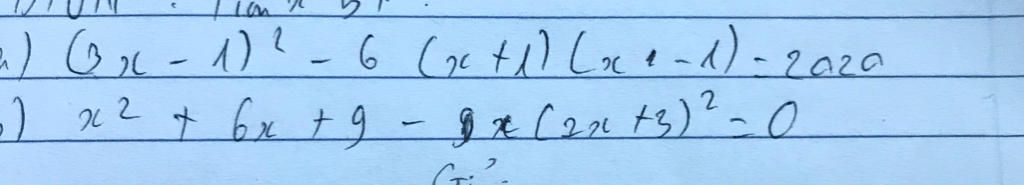 a) (3x - 1)² - 6 (x + 1) (x - 1) = 2020
b) x² + 6x + 9 - x (2x + 3)² = 0